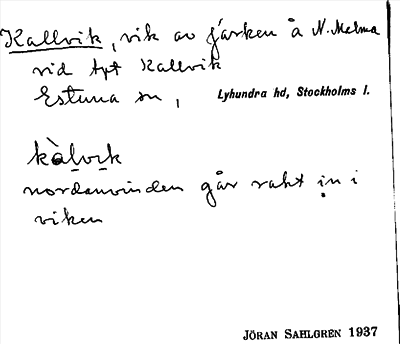 Kallvik, vik av fjärden å N. Malma
vid tpt Kallvik
Estuna sn, Lyhundra hd, Stockholms l.
kàlvik
nordanvinden går rakt in i
viken
JÖRAN SAHLGREN 1937